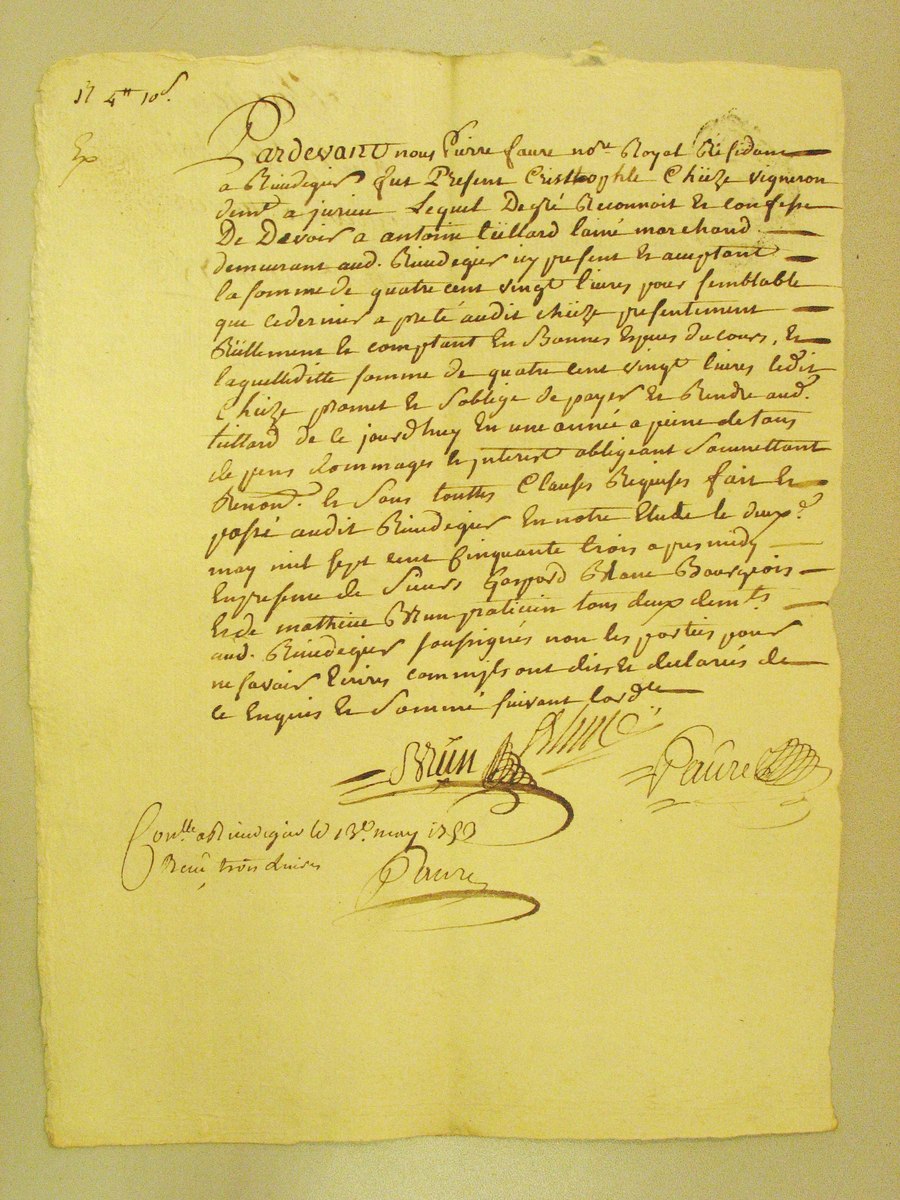 17 4tt 10s.
Ex
Pardevant nous Pierre faure nore Royal Résidant
a Rivedegier fut Present Cristhophle Chièze vigneron
demt a jurieu Lequel Degré Reconnoit et confesse
De Devoir a antoine tüillard lainé marchand
demeurant aud. Rivedegier icy present et aceptant
la somme de quatre cent vingt livres pour semblable
que cedernier a preté audit chièze presentement
Réellement et comptant En Bonnes Espes du cours, Et
laquelleditte somme de quatre cent vingt livres ledit
Chièze promet et soblige de payer Et Rendre aud.
tüillard de ce jourdhuy En une année a peine de tous
depens dommages et jnterest obligeant Soumettant
Renond. Et Sous touttes Clauses Requises fait Et
passé audit Rivedegier En notre Etude le deuxe
may mil sept cent Cinquante trois apres midy
Enpresence de Sieurs Gaspard Blanc Bourgeois
Et de mathieu Brun praticien tous deux demts
aud. Rivedegier soussignés non les parties pour
ne savoir Ecrires commjls ont dits Et declarées de
ce Enquis Et Sommé suivant lordce
Brun Blanc Faure
Conlle a Rivedegier le 13e may 1753
Receu trois livres
Faure